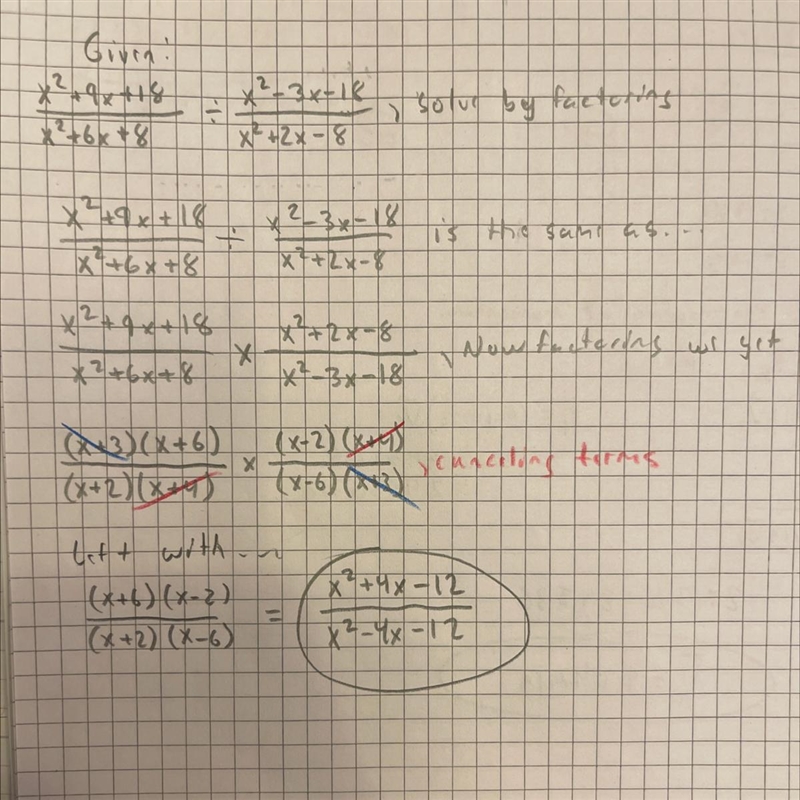 Given:
x²+9x+18 / x²+6x+8 ÷ x²-3x-18 / x²+2x-8 , solve by factoring
x²+9x+18 / x²+6x+8 ÷ x²-3x-18 / x²+2x-8 is the same as...
x²+9x+18 / x²+6x+8 x x²+2x-8 / x²-3x-18 , Now factoring we get
(x+3)(x+6) / (x+2)(x+4) x (x-2)(x+4) / (x-6)(x+3) , canceling terms
left with...
(x+6)(x-2) / (x+2)(x-6) = x²+4x-12 / x²-4x-12